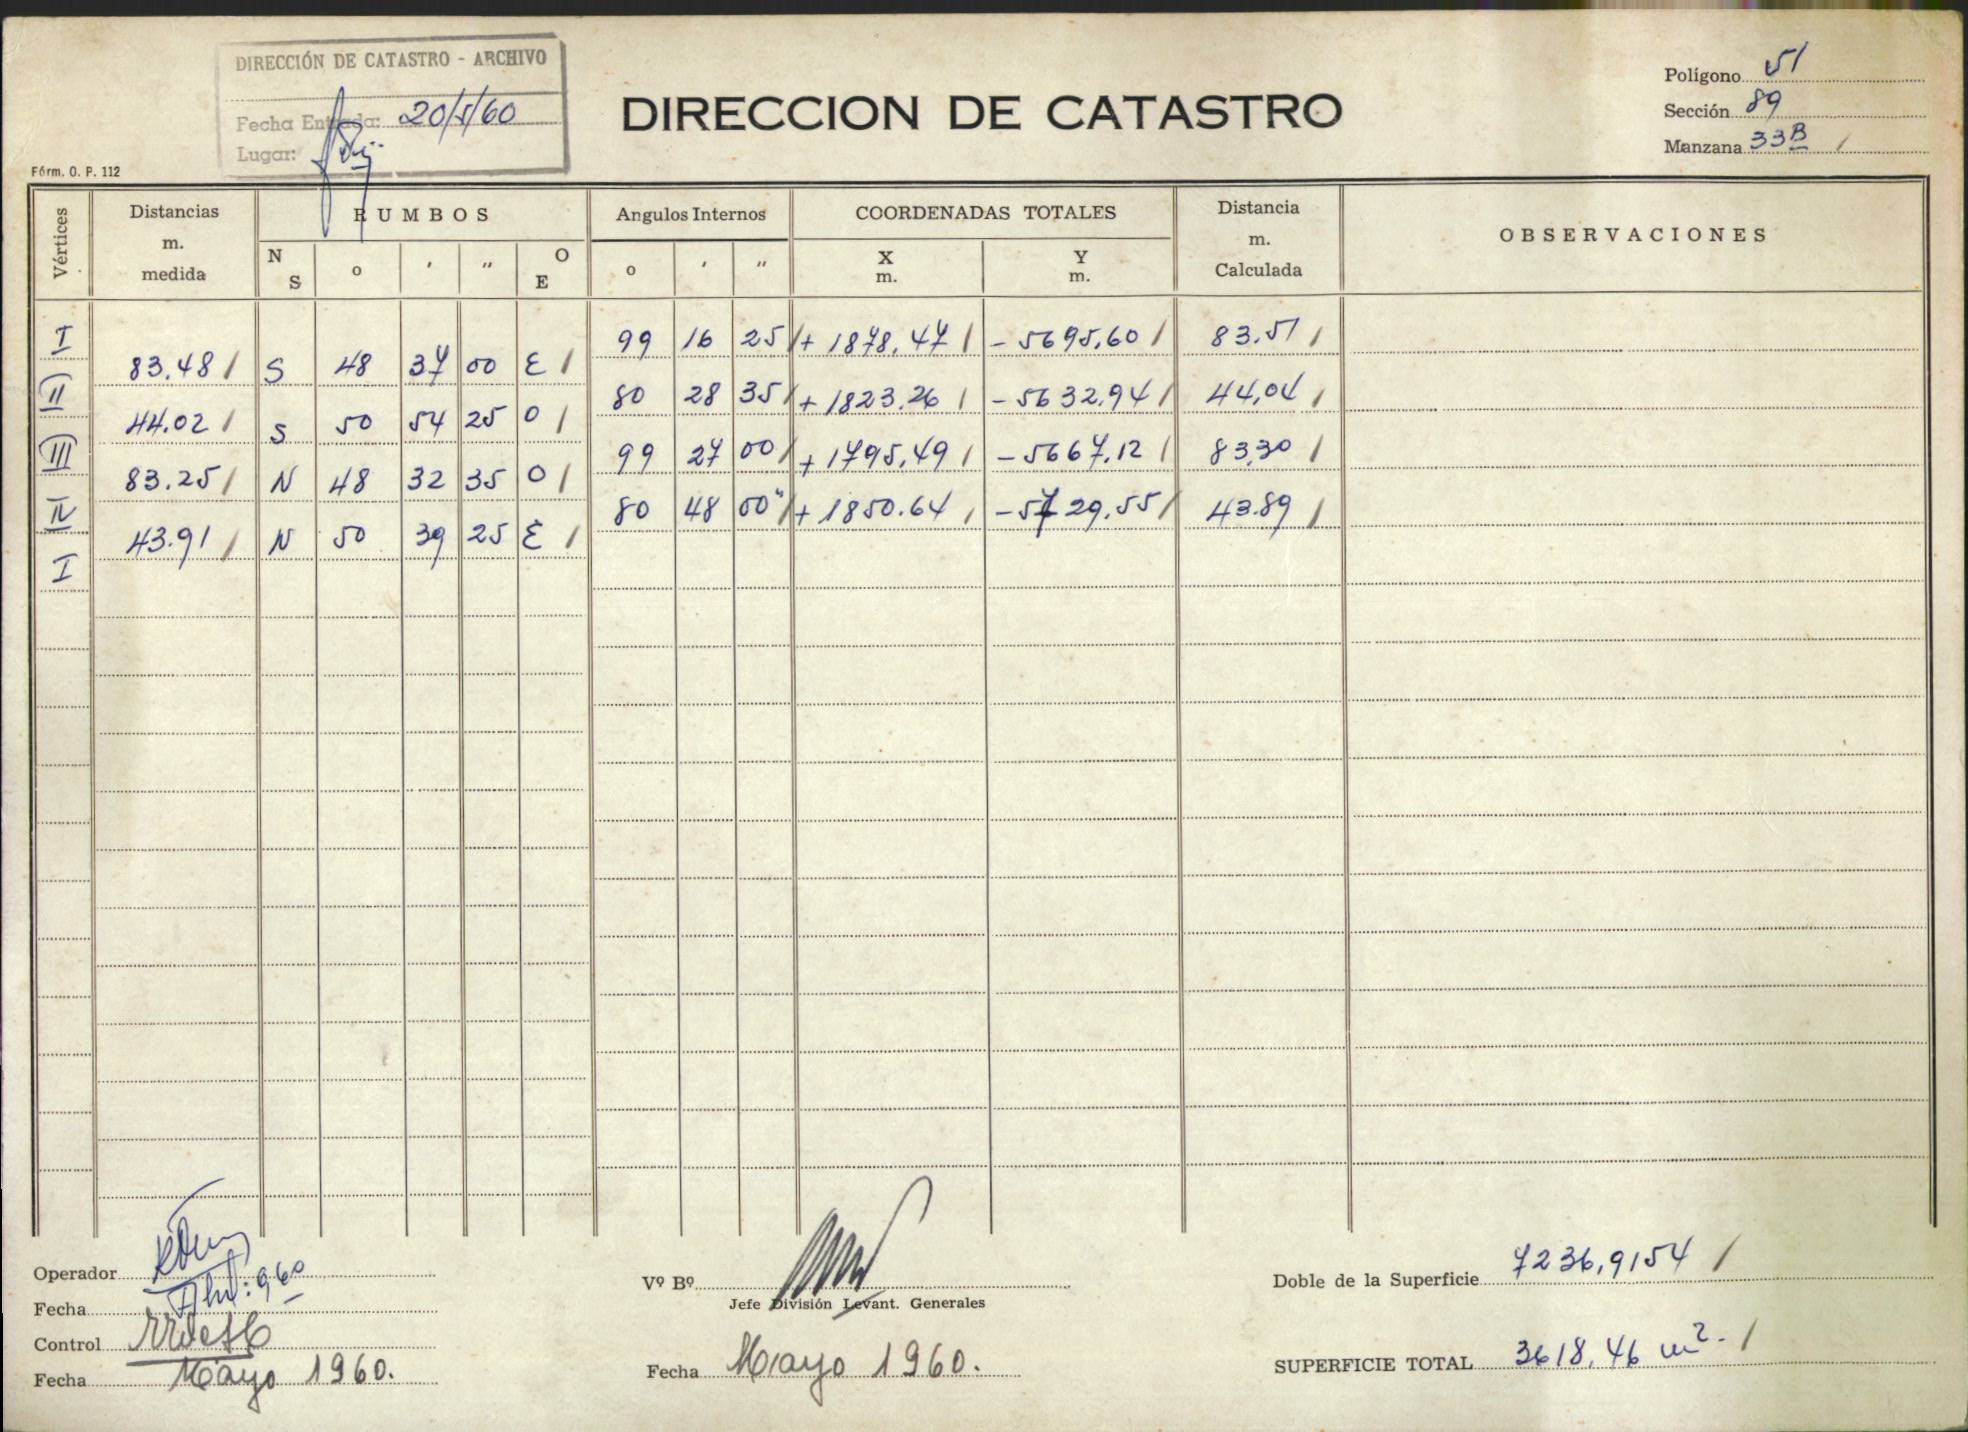 DIRECCIÓN DE CATASTRO - ARCHIVO
Fecha Entrada: 20/5/60
Lugar:
DIRECCION DE CATASTRO
Polígono 51
Sección 89
Manzana 33B /
Fórm. O. P. 112
Vértices
Distancias m. medida
RUMBOS
N S o ′ ″ O E
Angulos Internos
o ′ ″
COORDENADAS TOTALES
X m. Y m.
Distancia m. Calculada
OBSERVACIONES
I 99 16 25 / + 1878,47 / - 5695,60 / 83.51 /
83.48 / S 48 37 00 E /
II 80 28 35 / + 1823.26 / - 5632,94 / 44,04 /
44.02 / S 50 54 25 O /
III 99 27 00 / + 1795,49 / - 5667,12 / 83,30 /
83.25 / N 48 32 35 O /
IV 80 48 00" / + 1850.64 / - 5729,55 / 43.89 /
43.91 / N 50 39 25 E /
I
Operador
Fecha 960
Control
Fecha Mayo 1960.
Vº Bº
Jefe División Levant. Generales
Fecha Mayo 1960.
Doble de la Superficie 7236,9154 /
SUPERFICIE TOTAL 3618,46 m². /